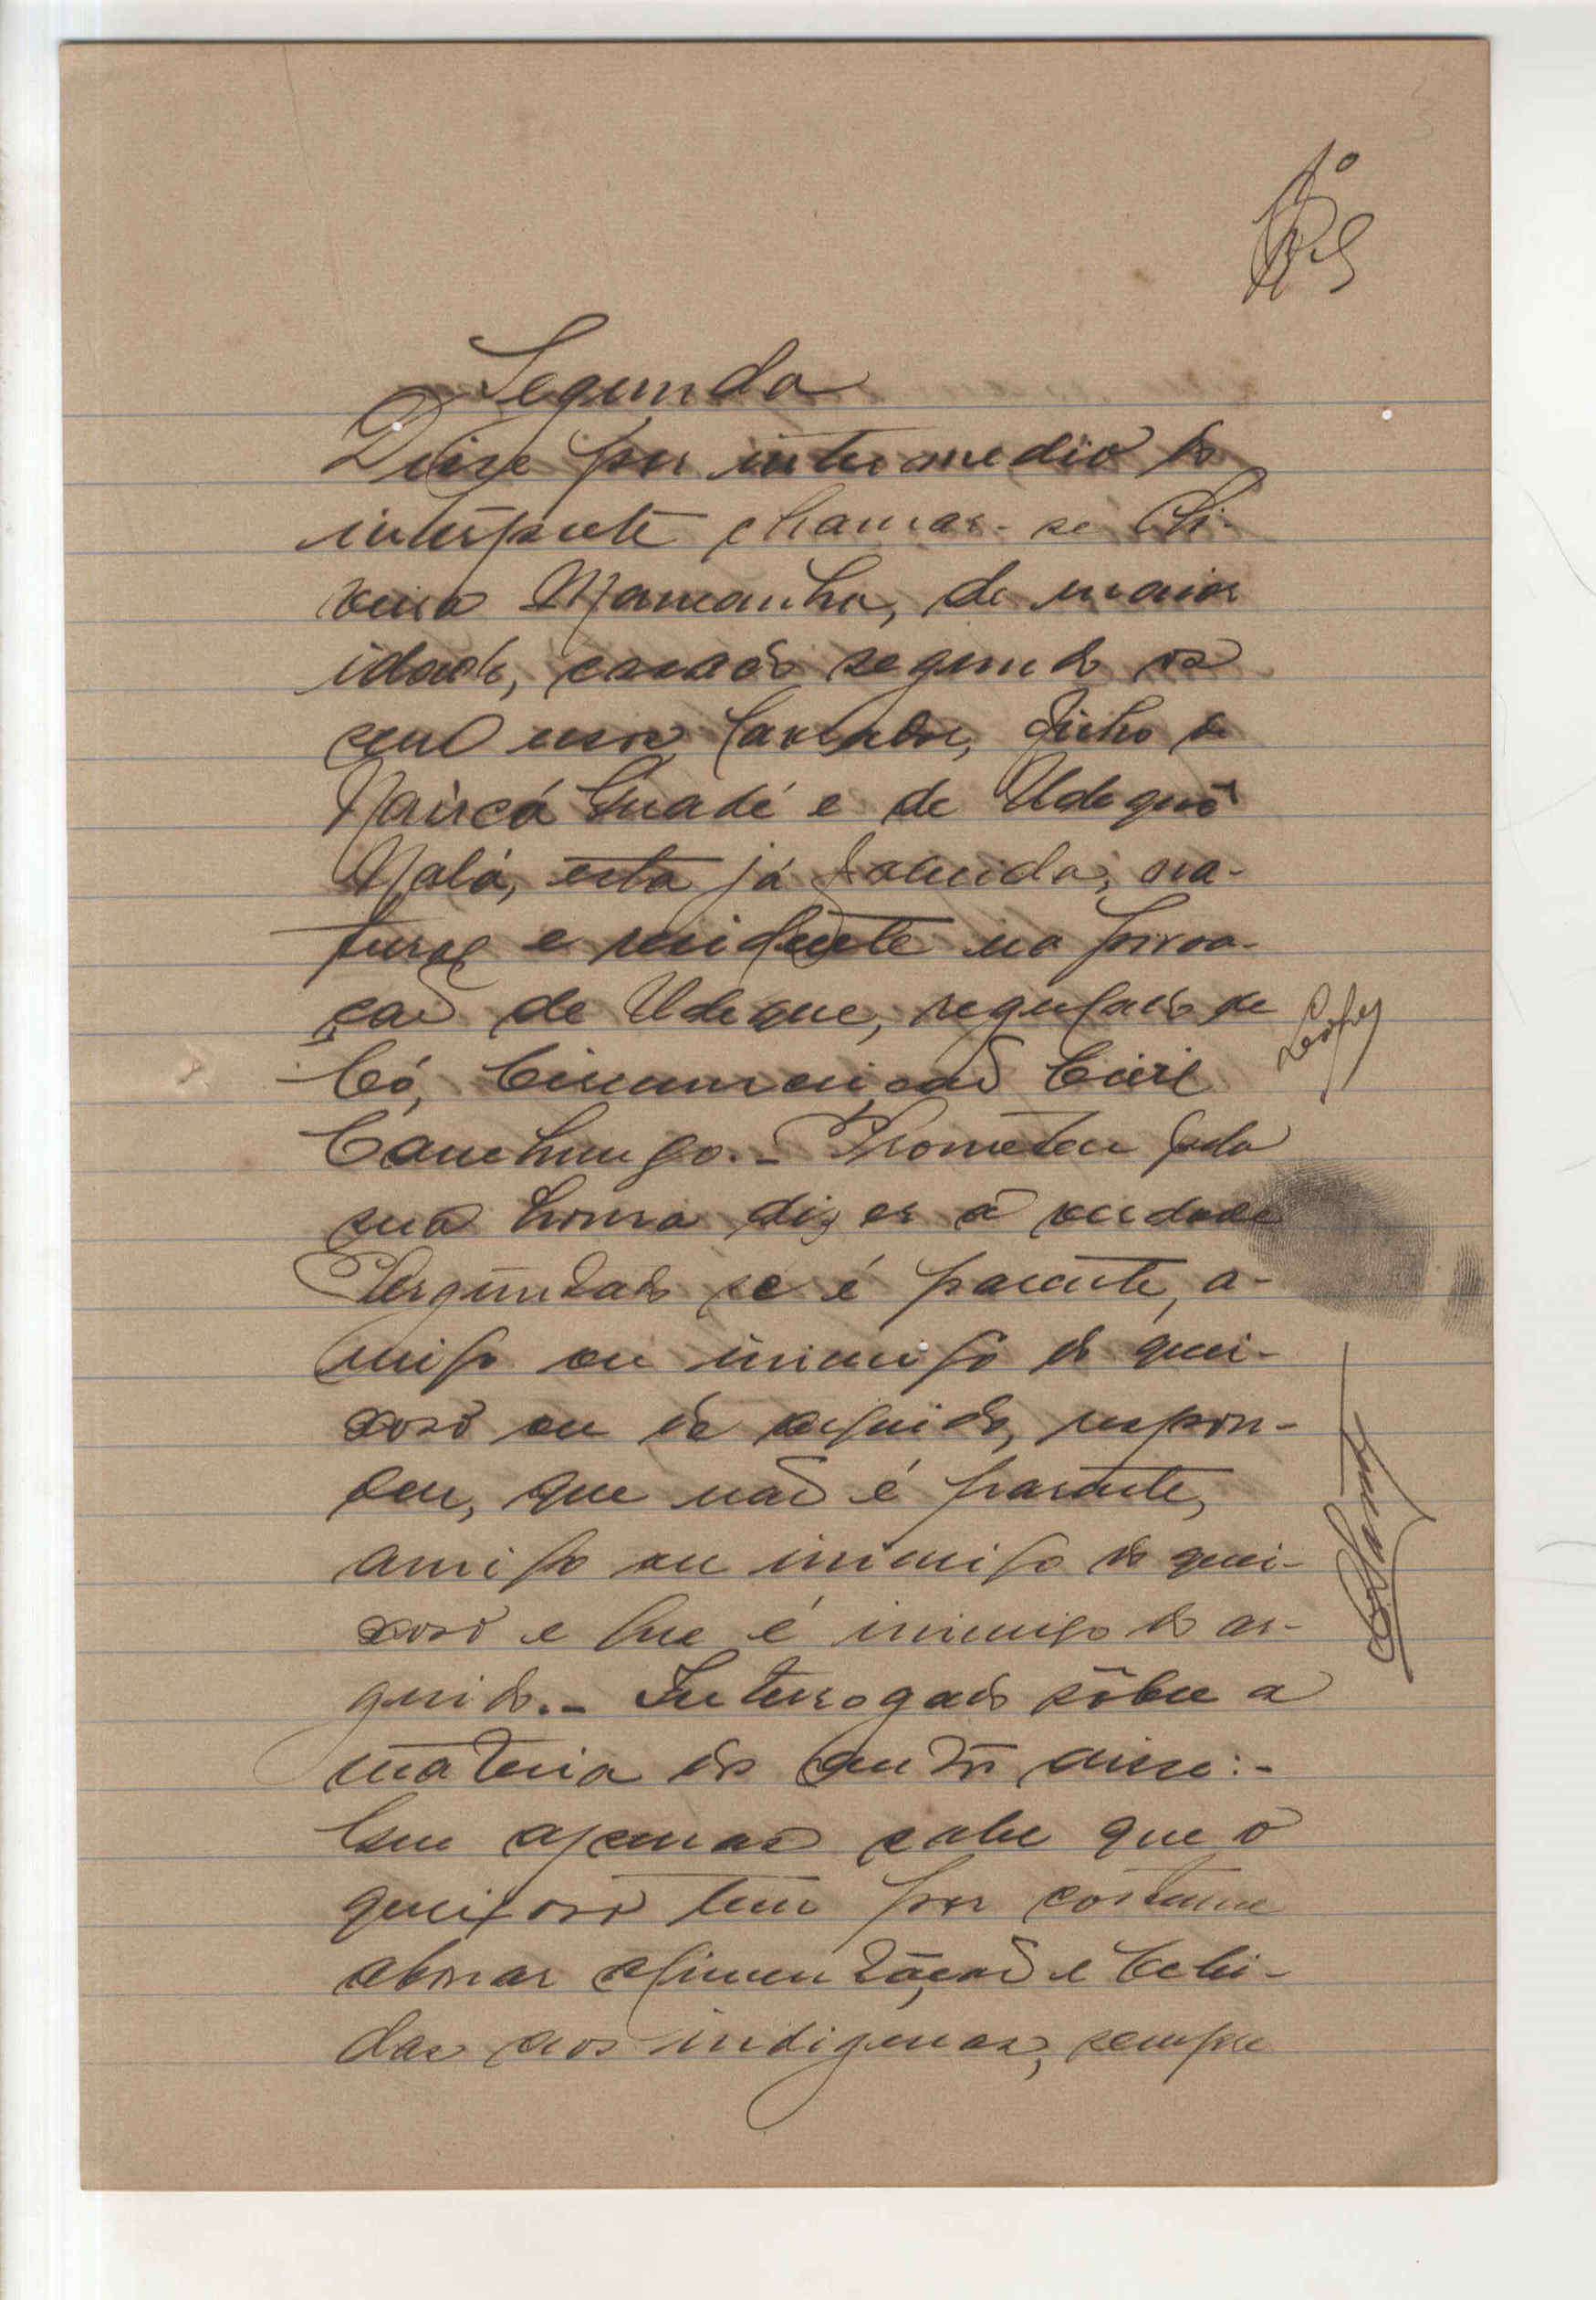 Segunda
Disse por intermedio do
interprete chamar-se
Mamanha, de maior
idade, casado segundo os
seus usos, lavrador, filho de
Naincá Guadé e de Udequô
Nalá, esta já falecida, na-
tural e residente na povoa-
ção de Udeque, regulado de
Có, Circunscrição Civil
Canchungo.- Prometeu pela
sua honra dizer a verdade
Perguntado se é parente, a-
migo ou inimigo do quei-
xoso ou do arguido, respon-
deu, que não é parente,
amigo ou inimigo do quei-
xoso e que é inimigo do ar-
guido.- Interrogado sôbre a
materia dos autos disse:-
Que apenas sabe que o
queixoso tem por costume
abonar alimentação e bebi-
das aos indigenas, sempre